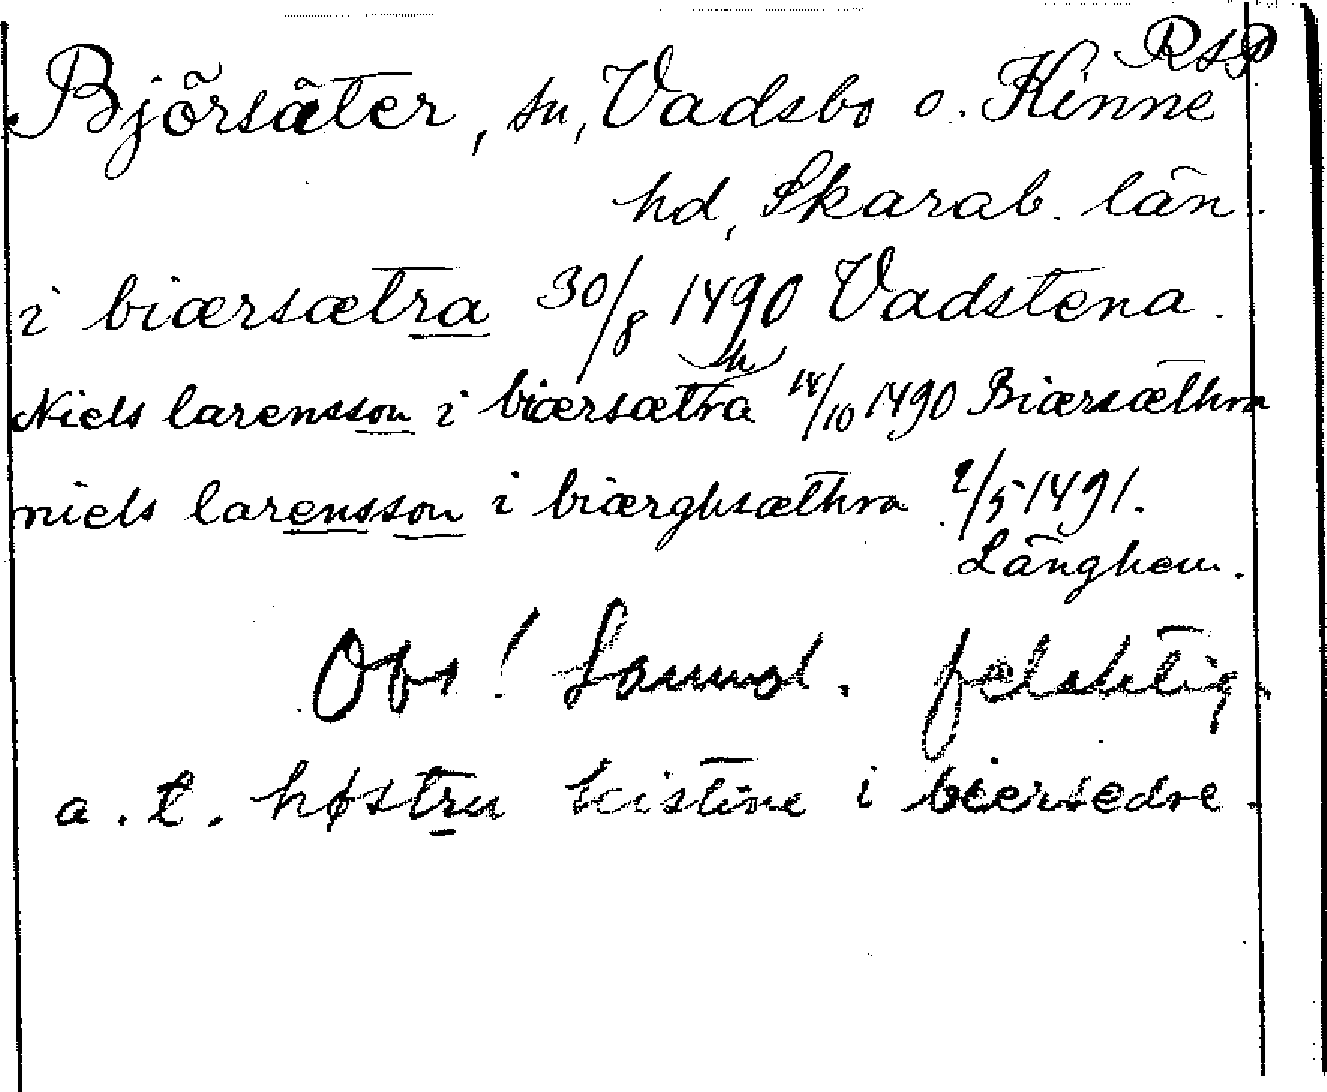 RSP
Björsäter, sn, Vadsbo o. Kinne
hd, Skarab. län.
i biærsætra 30/8 1490 Vadstena.
Niels larensson i biærsætra 14/10 1490 Biærsæthra
niels larensson i biærghsæthra 2/5 1491.
Länghem.
Obs! Samml. felaktig.
a. t. høstru kistine i biersedre.